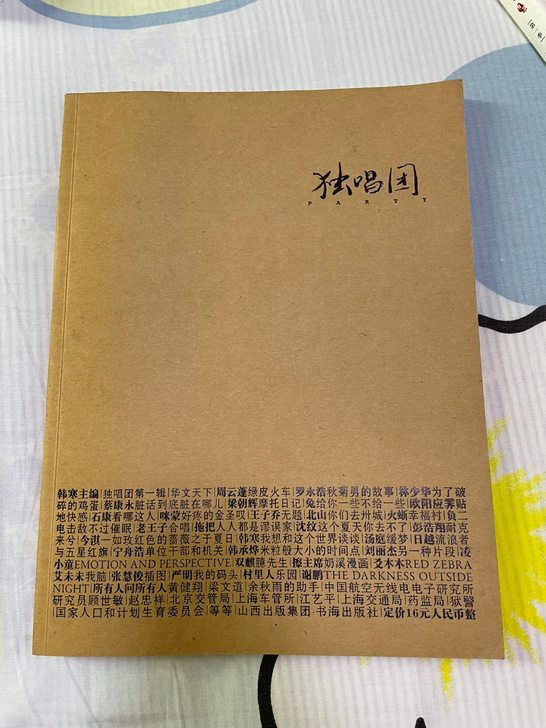 独唱团
PARTY
韩寒主编|独唱团第一辑|华文天下|周云蓬绿皮火车|罗永浩秋菊男的故事|林少华为了破
碎的鸡蛋|蔡康永脏话到底脏在哪儿|梁朝辉摩托日记|兔给你一些不给一些|欧阳应霁贴
地快感|石康看哪这人|咪蒙好疼的金圣叹|王子乔无题|北山你们去卅城|火蛎幸福村|鱼二
电击敌不过催眠|老王子合唱|拖把人人都是谬误家|沈纹这个夏天你去不了|彭浩翔耐克
来兮|令淇一如玫红色的蔷薇之于夏日|韩寒我想和这个世界谈谈|汤庭缓梦|日越流浪者
与五星红旗|宁舟浩单位干部和机关|韩承烨米粒般大小的时间点|刘丽杰另一种片段|凌
小童EMOTION AND PERSPECTIVE|双麒臆先生|擦主席奶溪漫画|爻木木RED ZEBRA
艾未未我脑|张慧俊插图|严明我的码头|村里人乐园|谢鹏THE DARKNESS OUTSIDE
NIGHT|所有人问所有人黄健翔|梁文道|余秋雨的助手|中国航空无线电电子研究所
研究员顾世敏|赵忠祥|北京交管局|上海车管所|江艺平|上海交通局|药监局|狱警
国家人口和计划生育委员会|等等|山西出版集团 书海出版社|定价16元人民币整